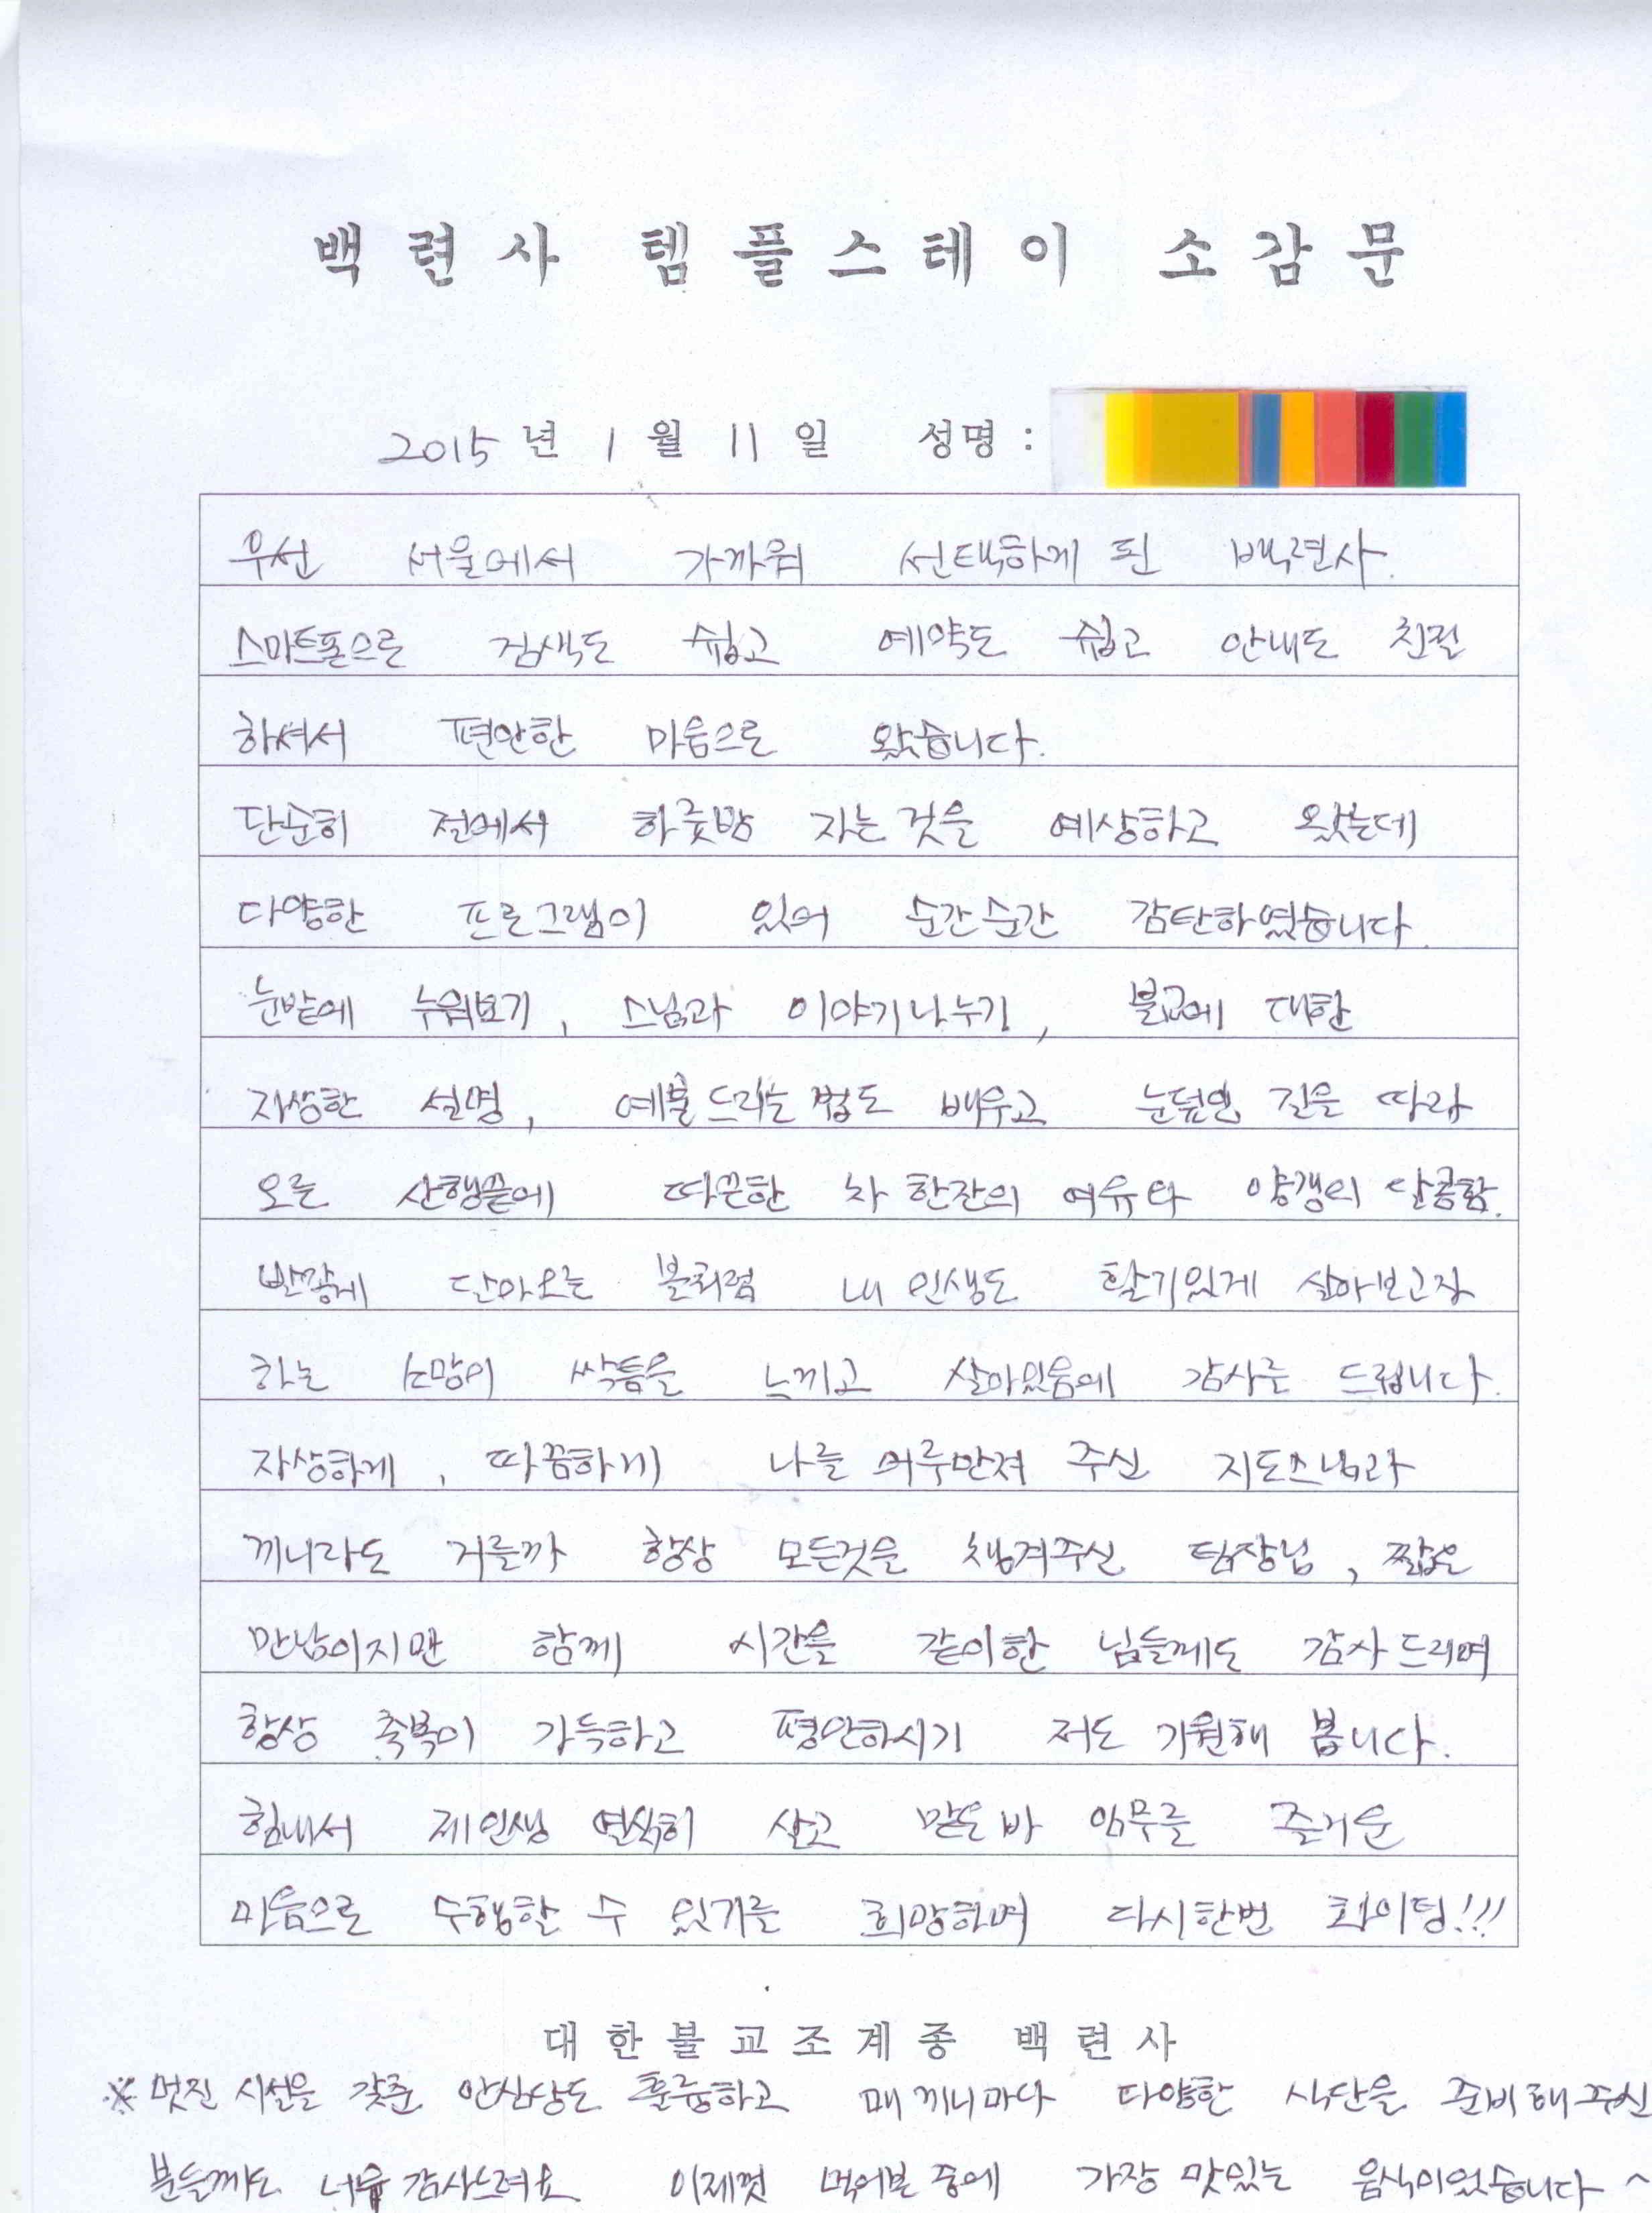 백련사 템플스테이 소감문
2015년 1월 11일 성명 :
우선 서울에서 가까워 선택하게 된 백련사.
스마트폰으로 검색도 쉽고 예약도 쉽고 안내도 친절
하셔서 편안한 마음으로 왔습니다.
단순히 절에서 하룻밤 자는 것을 예상하고 왔는데
다양한 프로그램이 있어 순간순간 감탄하였습니다.
눈밭에 누워보기, 스님과 이야기나누기, 불교에 대한
자상한 설명, 예불 드리는 법도 배우고 눈덮인 길을 따라
오른 산행끝에 따끈한 차 한잔의 여유와 양갱의 달콤함.
발갛게 달아오른 볼처럼 내 인생도 활기있게 살아보고자
하는 소망이 싹틈을 느끼고 살아있음에 감사를 드립니다.
자상하게, 따끔하게 나를 어루만져 주신 지도스님과
끼니라도 거를까 항상 모든것을 챙겨주신 팀장님, 짧은
만남이지만 함께 시간을 같이한 님들께도 감사드리며
항상 축복이 가득하고 평안하시기 저도 기원해 봅니다.
힘내서 제인생 열심히 살고 맡은 바 임무를 즐거운
마음으로 수행할 수 있기를 희망하며 다시한번 화이팅!!!
대한불교조계종 백련사
※ 멋진 시설을 갖춘 안심당도 훌륭하고 매 끼니마다 다양한 식단을 준비해주신
분들께도 너무 감사드려요 이제껏 먹어본 중에 가장 맛있는 음식이었습니다 ^